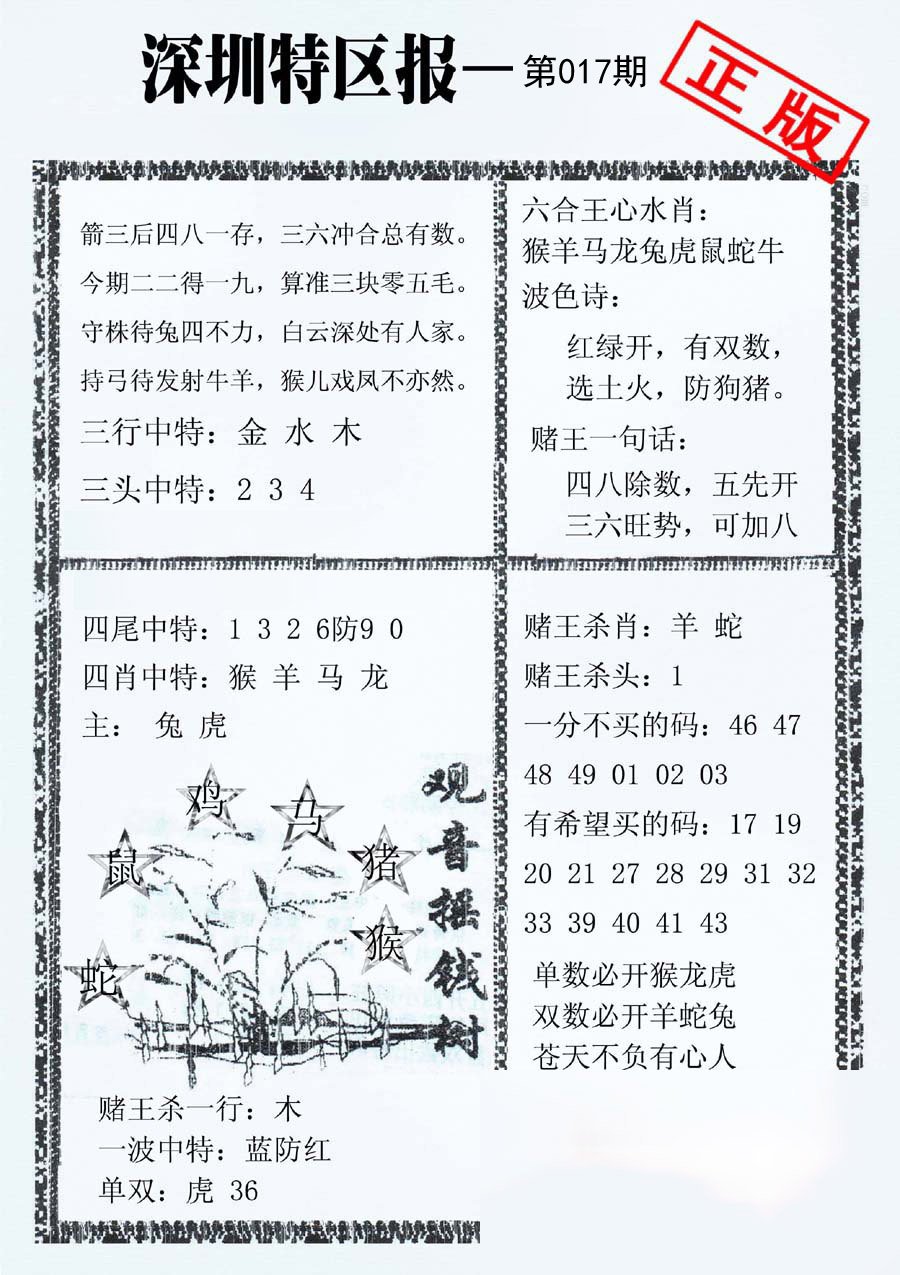 深圳特区报—第017期
正版
箭三后四八一存，三六冲合总有数。
今期二二得一九，算准三块零五毛。
守株待兔四不力，白云深处有人家。
持弓待发射牛羊，猴儿戏凤不亦然。
三行中特：金 水 木
三头中特：2 3 4
六合王心水肖：
猴羊马龙兔虎鼠蛇牛
波色诗：
红绿开，有双数，
选土火，防狗猪。
赌王一句话：
四八除数，五先开
三六旺势，可加八
四尾中特：1 3 2 6防9 0
四肖中特：猴 羊 马 龙
主： 兔 虎
鸡
马
鼠
猪
猴
蛇
观音摇钱树
赌王杀一行：木
一波中特：蓝防红
单双：虎 36
赌王杀肖：羊 蛇
赌王杀头：1
一分不买的码：46 47
48 49 01 02 03
有希望买的码：17 19
20 21 27 28 29 31 32
33 39 40 41 43
单数必开猴龙虎
双数必开羊蛇兔
苍天不负有心人